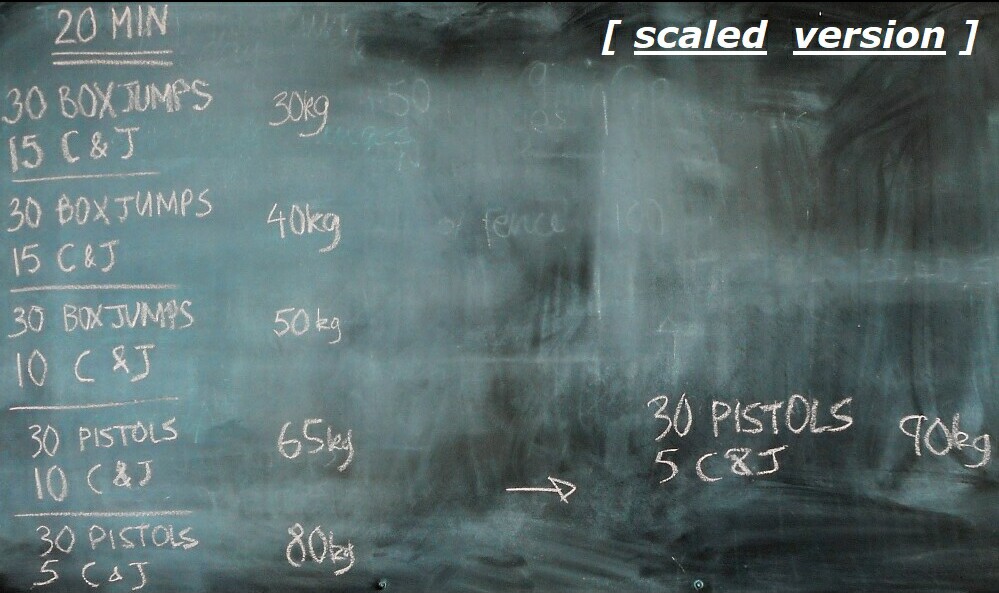 [ scaled version ]
20 MIN
30 BOX JUMPS 30kg
15 C & J
30 BOX JUMPS 40kg
15 C & J
30 BOX JUMPS 50kg
10 C & J
30 PISTOLS 65kg
10 C & J
30 PISTOLS 80kg
5 C & J
→ 30 PISTOLS 90kg
5 C & J